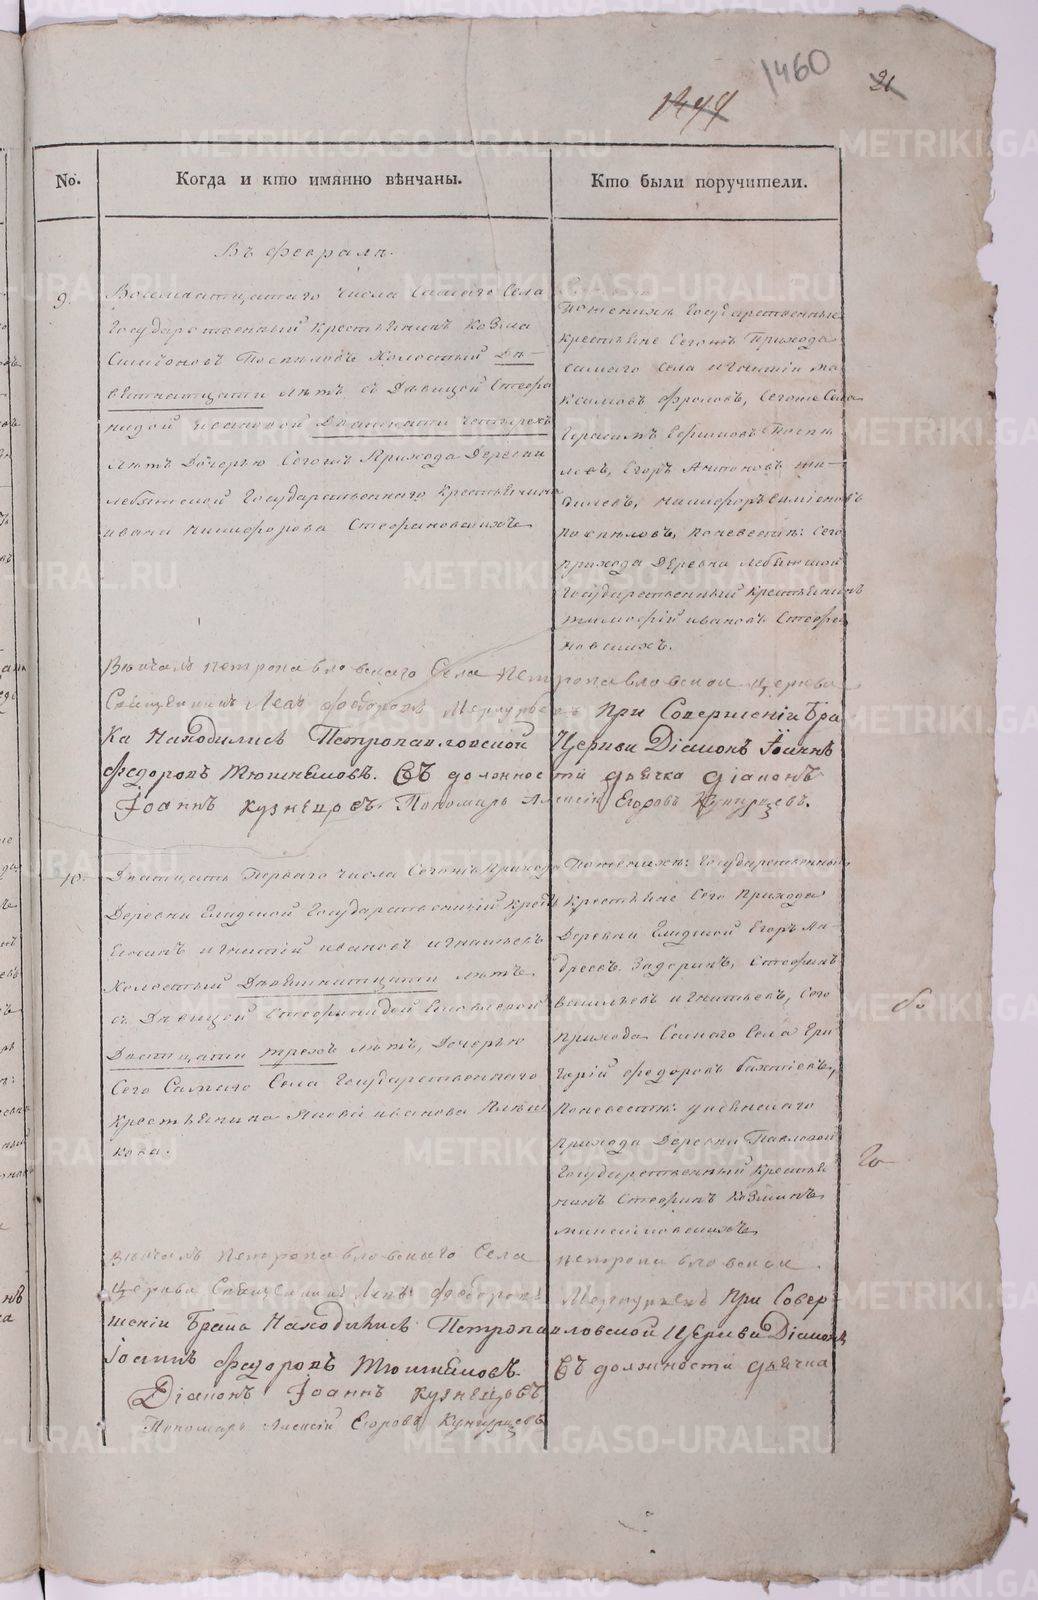 1460
21
1477
No.
Когда и кто имянно вѣнчаны.
Кто были поручители.
Въ февралѣ.
9.
Восемнатцатаго числа Самаго Села
Государственный крестьянинъ Козма
Симионовъ Поспѣловъ Холостый Де-
вятнатцати лѣтъ съ Дѣвицой Стефа
нидой Ивановой Дватцати четырехъ
лѣтъ Дочерью Сегожъ Прихода Деревни
Лебяжской Государственнаго крестьянина
Ивана Никифорова Стефановскихъ
По женихѣ Государственные
крестьяне Сегожъ Прихода
самаго села Игнатий Ма
ксимовъ Фроловъ, Сегоже Села
Герасимъ Ефимовъ Поспѣ
ловъ, Егоръ Антоновъ
Никифоръ Симионовъ
Поспѣловъ, По невестѣ: Сего
прихода Деревни Лебяжской
Государственный крестьянинъ
Тимофей Ивановъ Стефа
новскихъ.
Вѣнчалъ Петропавловскаго Села Петропавловской Церкви
Священникъ Левъ Федоровъ Меркурьевъ При Совершеніи Бра
ка Находились Петропавловской Церкви Діаконъ Іоаннъ
Федоровъ Тюшняковъ. Въ должности дьячка діаконъ
Іоаннъ Кузнецовъ. Пономарь Алексій Егоровъ Кунгурцевъ.
10.
Дватцать Перваго числа Сегожъ Прихода
Деревни Государственный крес
янинъ Игнатий Ивановъ Игнатьевъ
Холостый Девятнатцати лѣтъ
съ Дѣвицой Стефанидой Яковлевой
Дватцати трехъ лѣтъ, Дочерью
Сего Самаго Села Государственнаго
крестьянина Якова Иванова
кова.
По женихѣ: Государственные
крестьяне Сего Прихода
Деревни Егоръ Ан
дреевъ Задоринъ, Стефанъ
Васильевъ Игнатьевъ, Сего
прихода Самаго Села Гри
горій Федоровъ
По невестѣ:
прихода Деревни Павловой
Государственный крестья
нинъ Стефанъ Козминъ
Вѣнчалъ Петропавловскаго Села Петропавловской
Церкви Священникъ Левъ Федоровъ Меркурьевъ При Совер-
шеніи Брака Находились Петропавловской Церкви Діаконъ
Іоаннъ Федоровъ Тюшняковъ. Въ должности дьячка
Діаконъ Іоаннъ Кузнецовъ
Пономарь Алексій Егоровъ Кунгурцевъ
METRIKI.GASO-URAL.RU